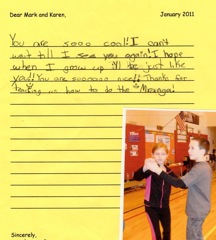 Dear Mark and Karen, January 2011
You are sooo cool! I can't
wait till I see you again! I hope
when I grow up I'll be just like
you!! You are soooooo nice!! Thanks for
teaching us how to do the Merenga!
Sincerely,